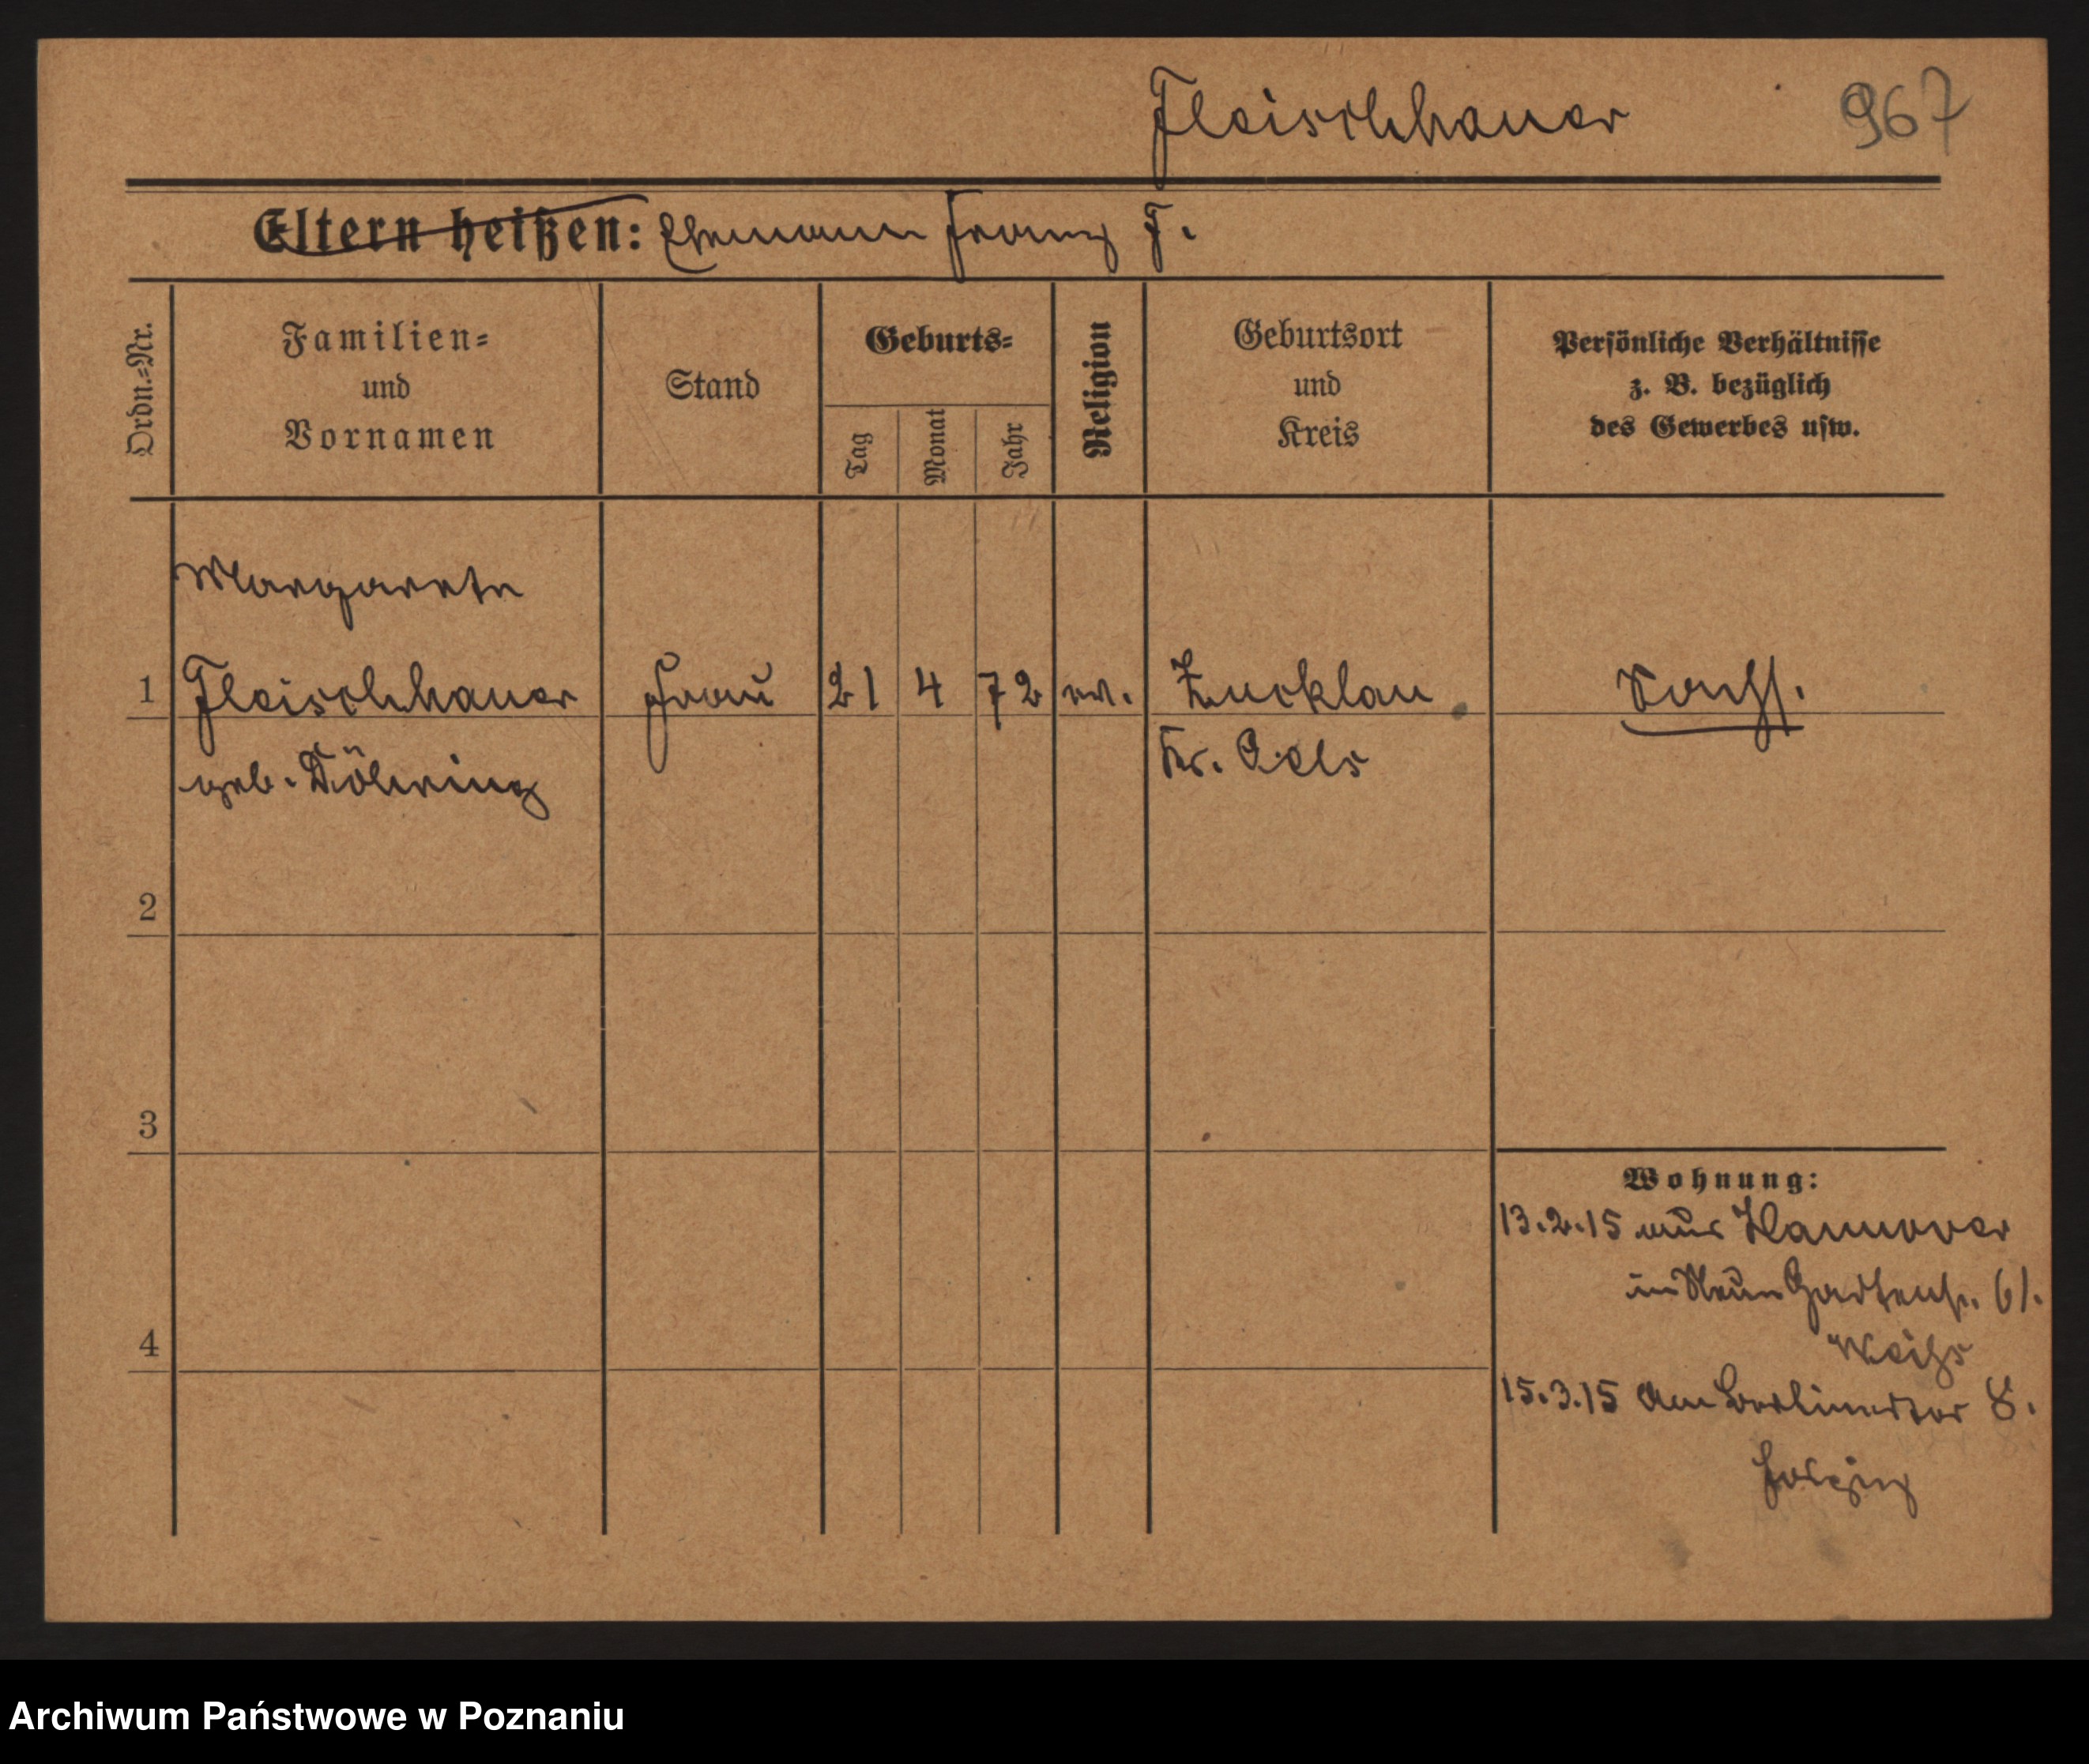 Fleischhauer 967
Eltern heißen: Ehemann Franz F.
Ordn.=Nr.
Familien=
und
Vornamen
Stand
Geburts=
Tag
Monat
Jahr
Religion
Geburtsort
und
Kreis
Persönliche Verhältnisse
z. B. bezüglich
des Gewerbes usw.
Margarete
1 Fleischhauer Frau 21 4 72 ev. Zucklau
geb. Döhring Kr. Oels
2
3
4
Wohnung:
13.2.15 aus Hannover
in Neue Gartenstr. 61.
Weihs
15.3.15 Am Berlinertor 8.
Archiwum Państwowe w Poznaniu